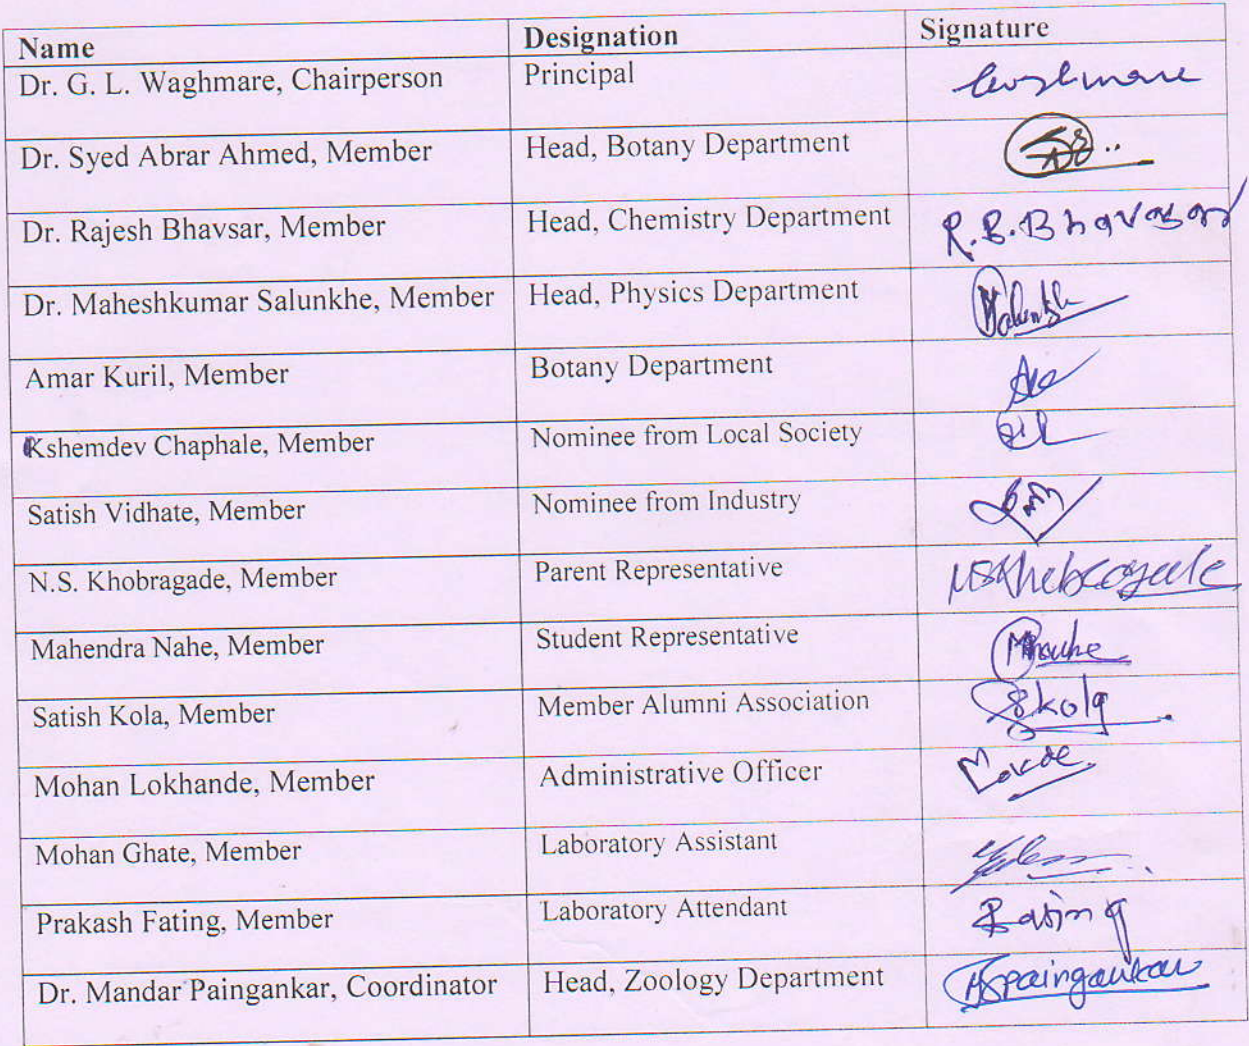 Name Designation Signature
Dr. G. L. Waghmare, Chairperson Principal
Dr. Syed Abrar Ahmed, Member Head, Botany Department
Dr. Rajesh Bhavsar, Member Head, Chemistry Department R.B.Bhavasar
Dr. Maheshkumar Salunkhe, Member Head, Physics Department
Amar Kuril, Member Botany Department
Kshemdev Chaphale, Member Nominee from Local Society
Satish Vidhate, Member Nominee from Industry
N.S. Khobragade, Member Parent Representative
Mahendra Nahe, Member Student Representative
Satish Kola, Member Member Alumni Association Skola
Mohan Lokhande, Member Administrative Officer
Mohan Ghate, Member Laboratory Assistant
Prakash Fating, Member Laboratory Attendant Fating
Dr. Mandar Paingankar, Coordinator Head, Zoology Department